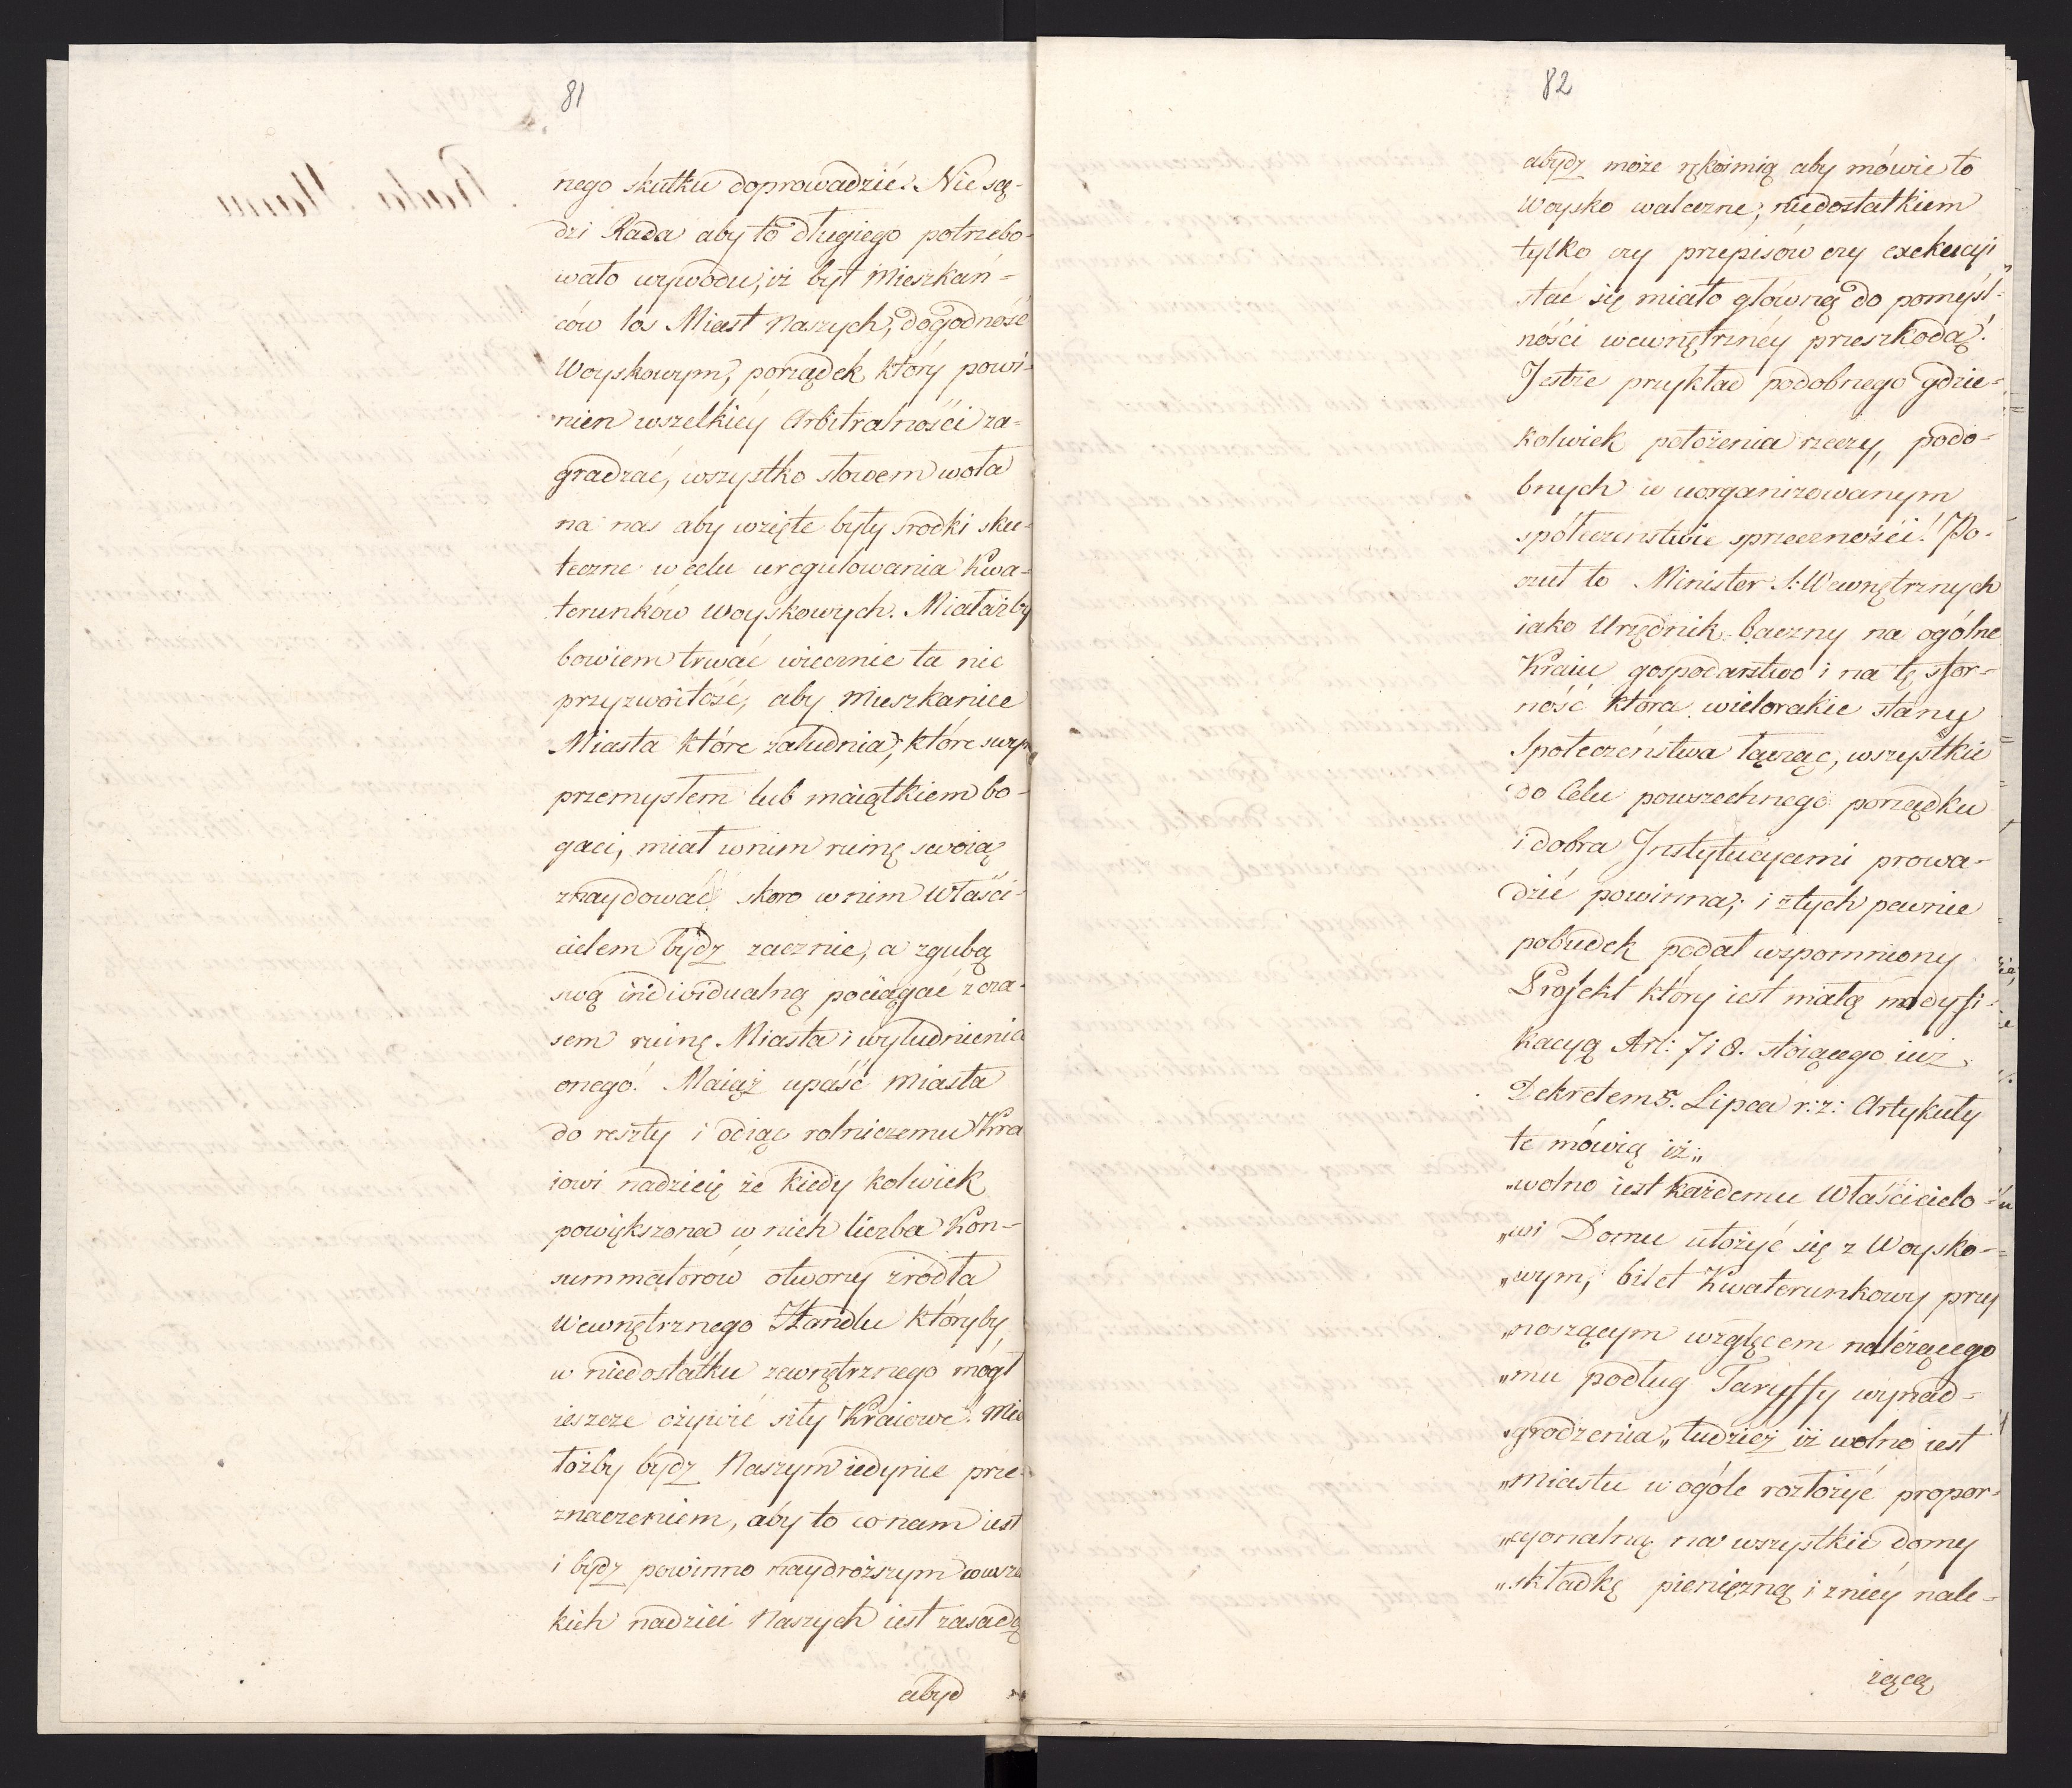 81
nego skutku doprowadzić. Nie są-
dzi Rada aby to długiego potrzebo-
wało wywodu, iż byt Mieszkań-
ców los Miast Naszych, dogodność
Woyskowym, porządek który powi-
nien wszelkiéy Arbitralności za-
gradzać, wszystko słowem woła
na nas aby wzięte były srodki sku-
teczne w celu uregulowania Kwa-
terunków woyskowych. Miałażby
bowiem trwać wiecznie ta nie
przyzwoitość, aby Mieszkaniec
Miasta które zaludnia, które swym
przemysłem lub maiątkiem bo-
gaci, miał w nim ruinę swoią
znaydować skoro w nim Właści-
cielem bydz zacznie, a zgubą
swą individualną pociągać z cza-
sem ruinę Miasta i wyludnienie
onego! Maiąż upaść Miasta
do reszty i odiąć rolniczemu Kra
iowi nadzieię że kiedy kolwiek
powiększona w nich liczba Kon-
summatorów otworzy źródła
Wewnętrznego Handlu któryby
w niedostatku zewnętrznego mógł
ieszcze ożywić siły Kraiowe! Mia
łożby bydz Naszym iedynie prze-
znaczeniem, aby to co nam iest
i bydz powinno naydroższym co wsze
kich nadziei Naszych iest zasadą
abyd
82
abydz może rękoimią aby mówię to
Woysko waleczne, niedostatkiem
tylko czy przepisów czy exekucyi
stać się miało główną do pomyśl-
ności wewnętrznéy przeszkodą!
Jestże przykład podobnego gdzie-
kolwiek położenia rzeczy, podo-
bnych w uorganizowanym
spółeczenstwie sprzeczności! Po-
czuł to Minister S: Wewnętrznych
iako Urzędnik baczny na ogólne
Kraiu gospodarstwo i na tę sfor-
ność która wielorakie stany
Społeczeństwa łącząc, wszystkie
do Celu powszechnego porządku
i dobra Instytucyami prowa-
dzić powinna, i z tych pewnie
pobudek podał wspomniony
Projekt który iest małą modyfi-
kacyą Art: 7 i 8. stoiącego iuż
Dekretem 5. Lipca r: z: Artykuły
te mówią iż„
„wolno iest każdemu Właścicielo-
„wi Domu ułożyć się z Woysko-
„wym, bilet Kwaterunkowy przy
„noszącym względem należącego
„mu podług Taryffy wynad-
„grodzenia„ tudzież iż wolno iest
„Miastu w ogóle rozłożyć propor-
„cyonalną na wszystkie domy
„składkę pieniężną i z niéy nale-
żącą